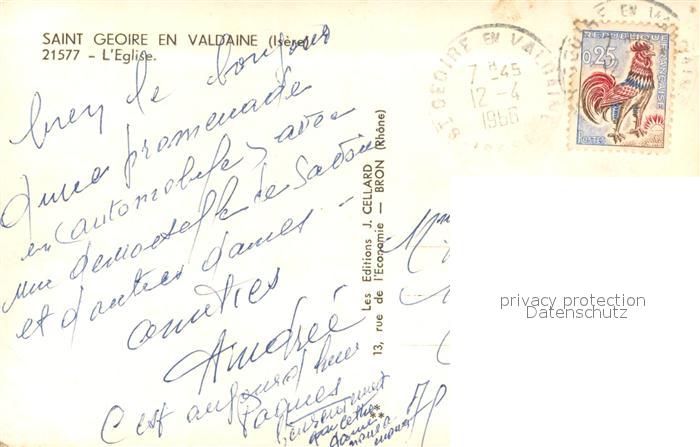 SAINT GEOIRE EN VALDAINE (Isère)
21577 - L'Eglise.
bien le bonjour
d'une promenade
en automobile, avec
une demoiselle de
et d'autres dames -
amitiés
Andrée
C'est aujourd'hui
Pâques
Les Editions J. CELLARD
13, rue de l'Economie — BRON (Rhône)
ST GEOIRE EN VALDAINE
7 H 45
12 - 4
1966
REPUBLIQUE FRANÇAISE
0,25
POSTES
privacy protection
Datenschutz